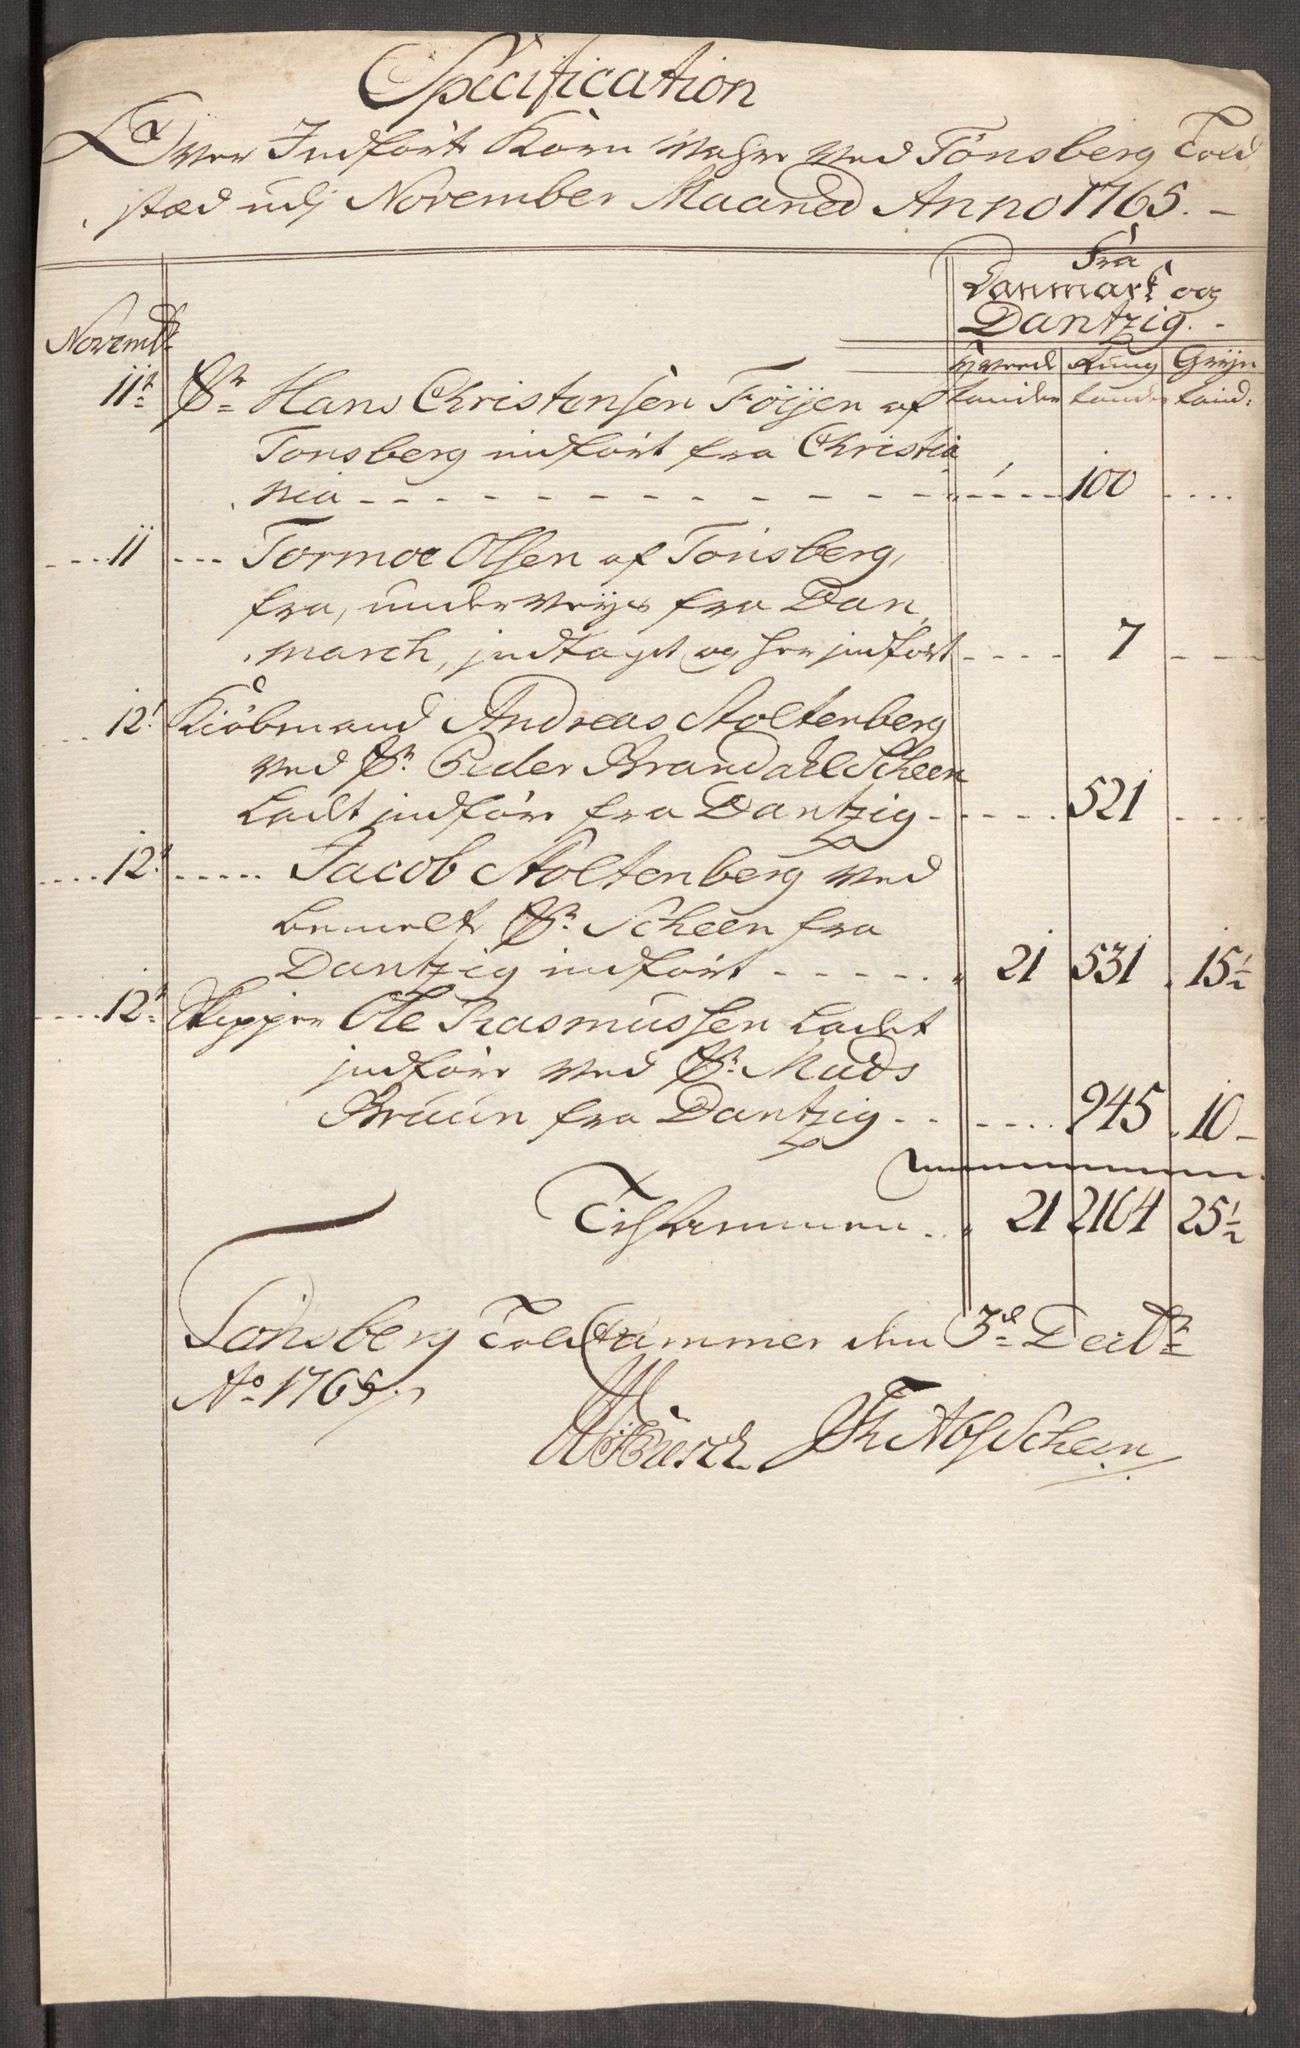 Specification
Over Indfört Korn Vahre ved Tönsberg Told
stæd udj November Maaned Anno 1765.
Fra
Danmark og
Dantzig.
Novembr
Hveede Rug Gryn
Tønder Tønder Tønd:
11t Sr Hans Christensen Föÿen af
Tonsberg indfört fra Christia
nia - - - 100
11 Tormoe Olsen af Tonsberg,
fra, underveÿs fra Dan
march, indtaget og her indfört 7
12t Kiöbmand Andreas Stoltenberg
ved Sr Peder Brandahl Scheen
Ladt indföre fra Dantzig 521
12t Jacob Stoltenberg ved
bemelte Sr Scheen fra
Dantzig indfört 21 531 15½
12t Skipper Ole Rasmussen Ladet
indföre ved Sr Mads
Bruun fra Dantzig 945 10
Tilsammen 21 2104 25½
Tonsberg Toldkammer den 3d Decbr
Ao 1765
Scheen